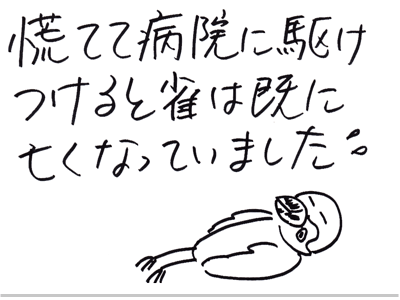 慌てて病院に駆け
つけると雀は既に
亡くなっていました